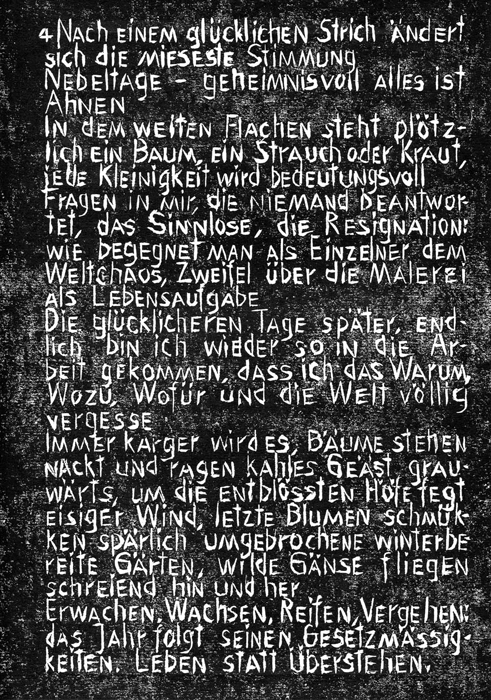 4 Nach einem glücklichen Strich ändert
sich die mieseste Stimmung
Nebeltage - geheimnisvoll alles ist
Ahnen
In dem weiten Flachen steht plötz-
lich ein Baum, ein Strauch oder Kraut,
jede Kleinigkeit wird bedeutungsvoll
Fragen in mir, die niemand beantwor-
tet, das Sinnlose, die Resignation:
wie begegnet man als Einzelner dem
Weltchaos, Zweifel über die Malerei
als Lebensaufgabe
Die glücklicheren Tage später, end-
lich bin ich wieder so in die Ar-
beit gekommen, dass ich das Warum,
Wozu, Wofür und die Welt völlig
vergesse
Immer karger wird es, Bäume stehen
nackt und ragen kahles Geäst grau-
wärts, um die entblössten Höfe fegt
eisiger Wind, letzte Blumen schmük-
ken spärlich umgebrochene winterbe
reite Gärten, wilde Gänse fliegen
schreiend hin und her
Erwachen, Wachsen, Reifen, Vergehen:
das Jahr folgt seinen Gesetzmässig-
keiten. Leben statt Überstehen.